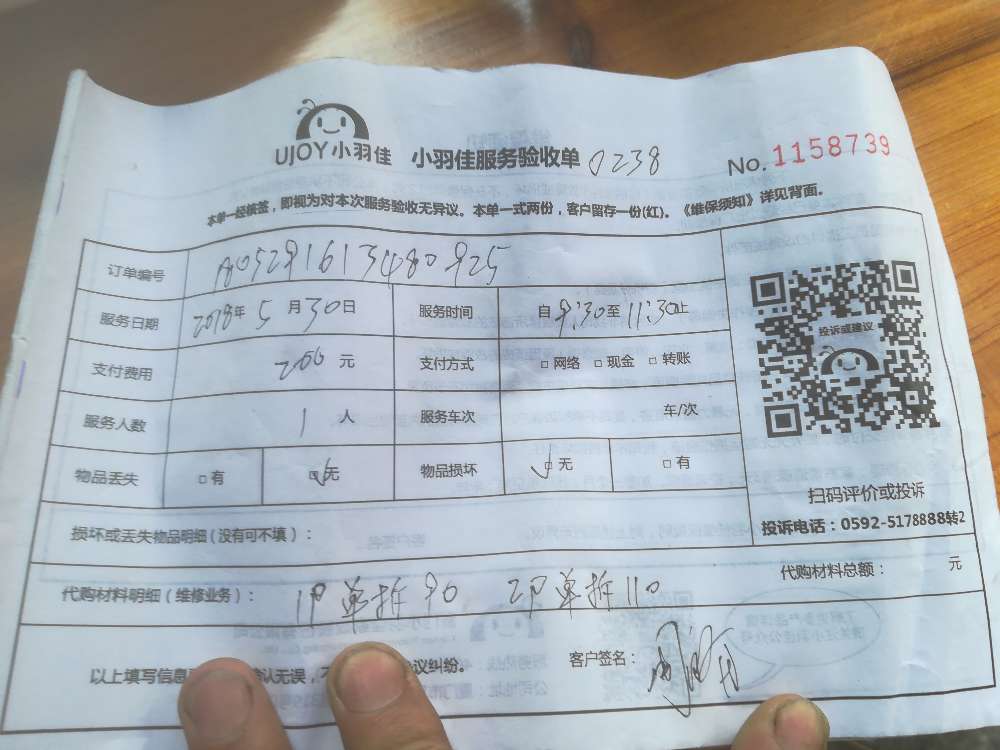 UJOY小羽佳 小羽佳服务验收单 0238 No. 1158739
本单一经核签，即视为对本次服务验收无异议。本单一式两份，客户留存一份(红)。《维保须知》详见背面。
订单编号
服务日期 2018年 5 月 30 日 服务时间 自 9:30 至 11:30 止
支付费用 200 元 支付方式 □ 网络 □ 现金 □ 转账
服务人数 1 人 服务车次 车/次
物品丢失 □ 有 □ 无 物品损坏 □ 无 □ 有
投诉或建议
扫码评价或投诉
投诉电话：0592-5178888转2
损坏或丢失物品明细（没有可不填）：
代购材料明细（维修业务）： 1P 单拆 90 2P 单拆 110 代购材料总额： 元
以上填写信息 确认无误，不 议纠纷。 客户签名：